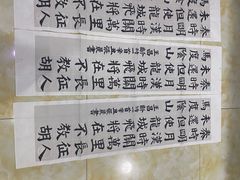 秦時明月漢時關萬里長征人
未還但使龍城飛將在不教胡
馬度陰山
秦時明月漢時關萬里長征人
未還但使龍城飛將在不教胡
馬度陰山
秦時明月漢時關萬里長征人
未還但使龍城飛將在不教胡
馬度陰山